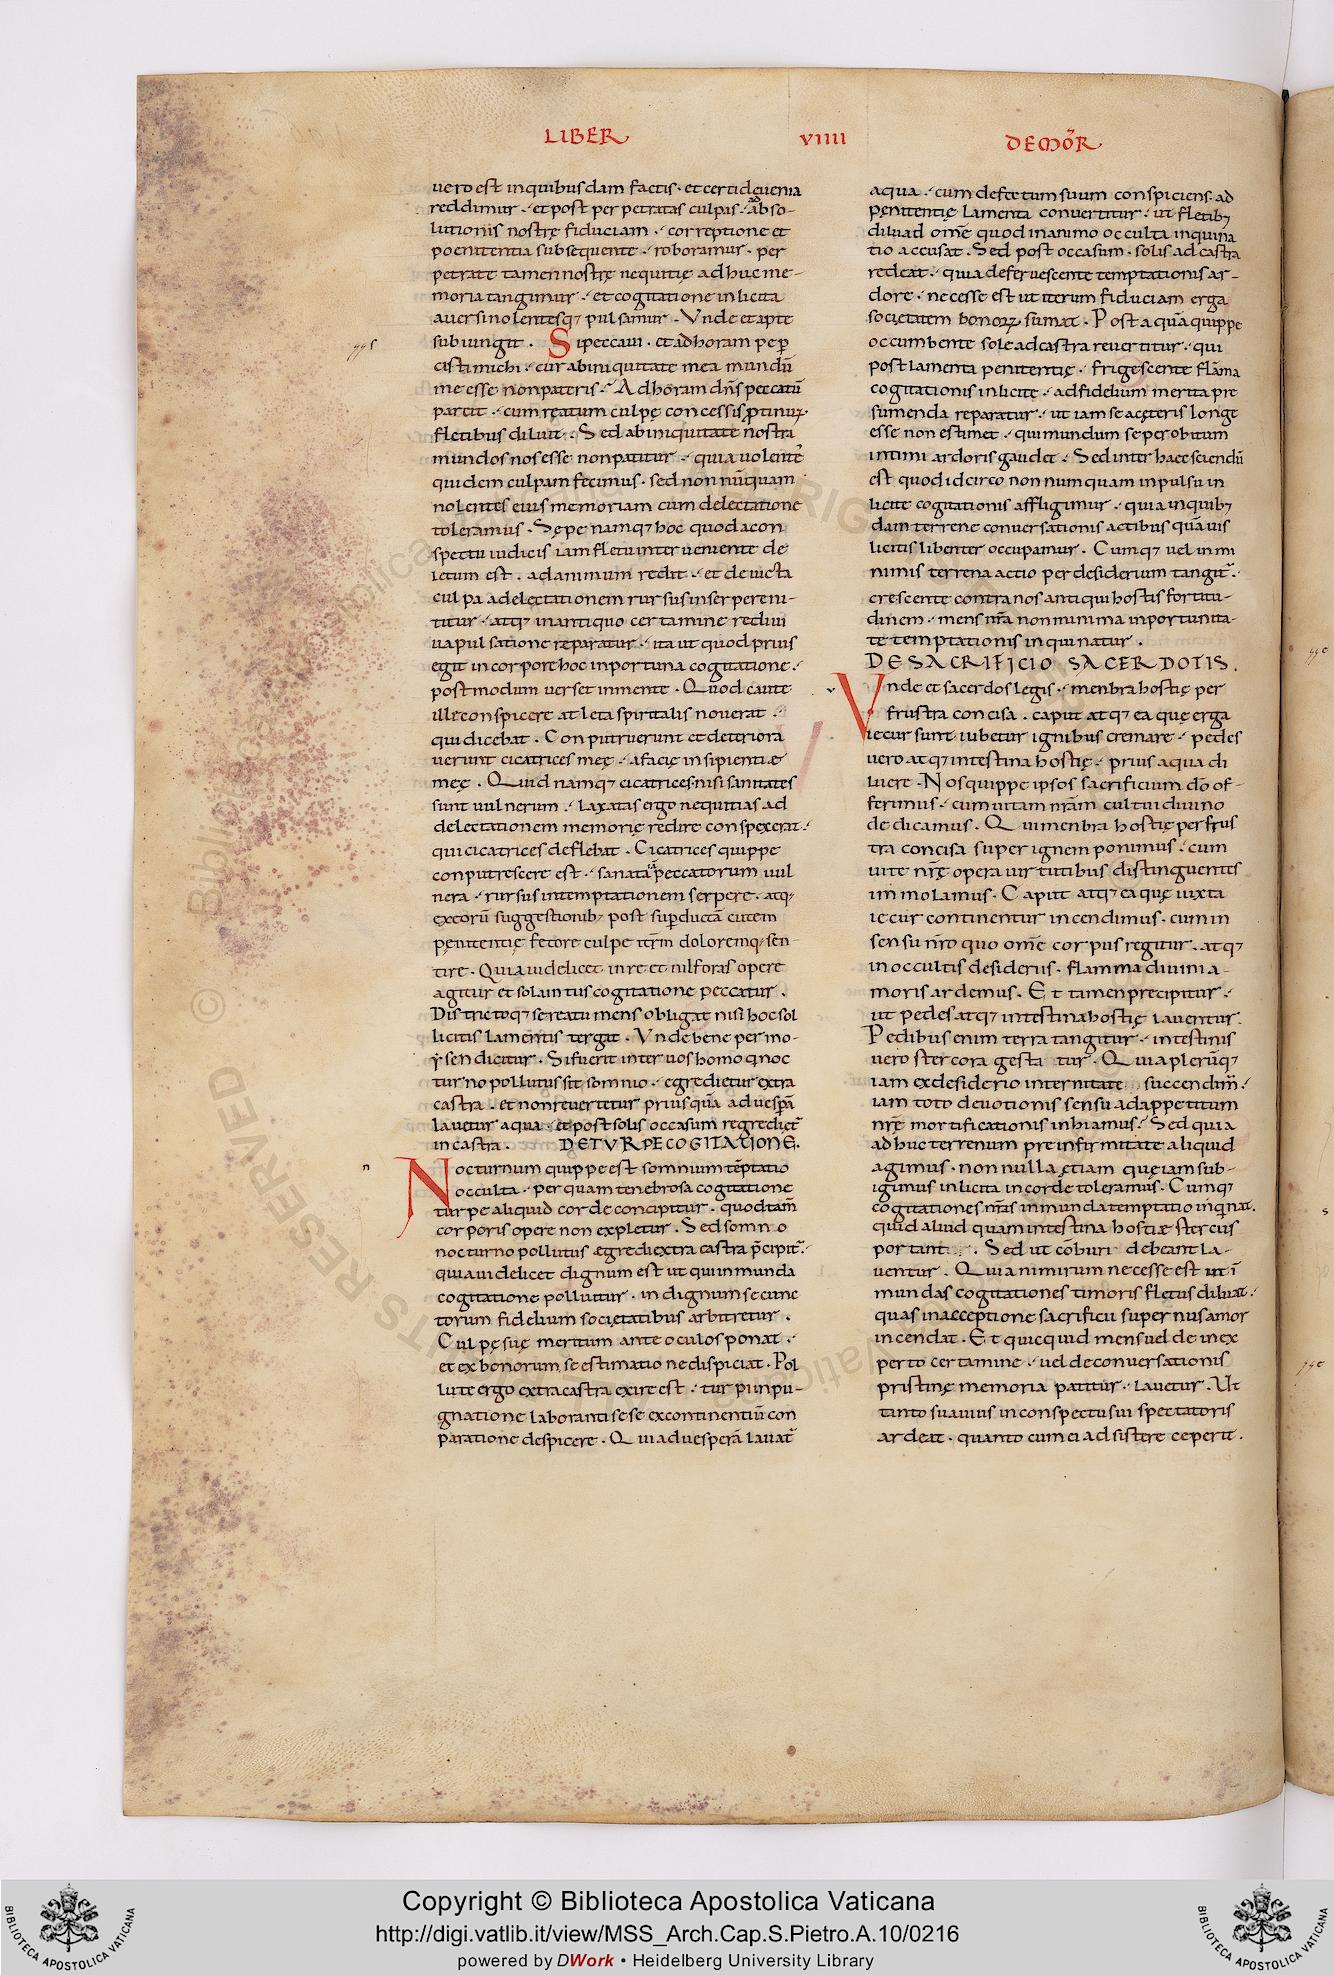 LIBER
VIIII
DE MOR̃
vero est in quibusdam factis · et certi de uenia
reddimur ·́ et post perpetratas culpas ·́ ad abso-
lutionis nostrę fiduciam ·́ correptione et
poenitentia subsequente ·́ roboramur ·́ per
petrate tamen nostrę nequitię adhuc me-
moria tangimur ·́ et cogitatione inlicita
auersi nolentesq; pulsamur · Vnde et apte
subiungit . Si peccaui · et ad horam pep̱
cisti michi ·́ cur ab iniquitate mea mundū
me esse non pateris ·́ Ad horam dn̄s peccatū
parcit ·́ cum reatum culpę concessis ꝓtinuꝫ
fletibus diluit ·́ Sed ab iniquitate nostra
mundos nos esse non patitur ·́ quia uolente᷎s
quidem culpam fecimus · sed non nūquam
nolentes eius memoriam cum delectatione
toleramus · Sępe namq; hoc quod a con
spectu iudicis iam fletu interueniente de
ietum est . ad animum redit ·́ et deuicta
culpa ad electationem rursus inserpere ni-
titur ·́ atq; in antiquo certamine rediui
ua pulsatione reparatur ·́ ita ut quod prius
egit in corpore hoc inportuna cogitatione ·́
postmodum uerset in mente · Quod caute
ille conspicere atleta spiritalis nouerat ·́
qui dicebat . Conputruerunt et deteriora
uerunt cicatrices meę ·́ a facię insipientię
meę · Quid namq; cicatrices nisi sanitates
sunt uulnerum ·́ Laxatas ergo nequitias ad
delectationem memorię redire conspexerat ·́
qui cicatrices deflebat . Cicatrices quippe
conputrescere est ·́ sanata peccatorum uul
nera ·́ rursus in temptationem serpere · atq;
ex eorū suggestionib; post sup̱ductā cutem
pęnitentię fetore culpe iterm̄ doloremq; sen-
tire · Quia uidelicet in re et nil foras opere
agitur et sola intus cogitatione peccatur .
Districtoq; se reatu mens obligat nisi hoc sol
licitis lamentis tergit . Vnde bene per mo-
ẏsen dicitur . Si fuerit inter uos homo q; noc
turno pollutus sit somnio ·́ egredietur extra
castra . et non reuertetur prius quā ad uesp̱ā
lauetur aqua ·́ et post solis occasum regrediet᷎
in castra . DE TVRPE COGITATIONE.
n
Nocturnum quippe est somnium tēptatio
occulta ·́ per quam tenebrosa cogitatione
turpe aliquid corde concipitur . quod tam̄
corporis opere non expletur . Sed somno
nocturno pollutus egredi extra castra p̄cipit᷎ ·́
quia uidelicet dignum est ut qui inmunda
cogitatione polluitur . indignum se cunc
torum fidelium societatibus arbitretur .
Culpę suę meritum ante oculos ponat ·́
et ex bonorum se estimatione dispiciat · Pol
lute ergo extra castra exire est ·́ turpi inpu-
gnatione laboranti sese ex continentiū con
paratione despicere . Qui ad uesperā lauat᷎
aqua ·́ cum defectum suum conspiciens · ad
pęnitentię lamenta conuertitur ·́ ut fletib;
diluad om̄e quod in animo occulta inquina
tio accusat . Sed post occasum · solis ad castra
redeat ·́ quia deferuescente temptationis ar-
dore ·́ necesse est ut iterum fiduciam erga
societatem bonoꝝ sumat . Post aquā quippe
occumbente sole ad castra reuertitur ·́ qui
post lamenta penitentię ·́ frigescente flāma
cogitationis inlicite ·́ ad fidelium merita pre
sumenda reparatur ·́ ut iam se a cęteris longe
esse non estimet ·́ qui mundum se per obitum
intimi ardoris gaudet ·́ Sed inter haec sciendū
est quod idcirco non numquam inpulsu in
licite cogitationis affligimur ·́ quia in quib;
dam terrene conuersationis actibus quāuis
licitis libenter occupamur . Cumq; uel in mi
nimis terrena actio per desiderium tangit᷎ ·́
crescente contra nos antiqui hostis fortitu-
dinem ·́ mens nr̄a non minima inportunita-
te temptationis inquinatur .
DE SACRIFICIO SACERDOTIS .
v
Vnde et sacerdos legis ·́ menbra hostię per
frustra concisa . caput atq; ea quę erga
iecur sunt iubetur ignibus cremare ·́ pedes
uero atq; intestina hostię ·́ prius aqua di
luere · Nos quippe ipsos sacrificium dō of-
ferimus ·́ cum uitam nr̄am cultui diuino
dedicamus . Qui menbra hostię per frus
tra concisa super ignem ponimus ·́ cum
uite nr̄ę opera uirtutibus distinguentes
immolamus . Caput atq; ea quę iuxta
iecur continentur incendimus . cum in
sensu nr̄o quo om̄e corpus regitur . atq;
in occultis desideriis . flamma diuini a-
moris ardemus . Et tamen precipitur ·́
ut pedes atq; intestina hostię lauentur .
Pedibus enim terra tangitur ·́ intestinis
uero stercora gestatur . Quia plerūq;
iam ex desiderio internitate succendim̄ ·́
iam toto deuotionis sensu ad appetitum
nr̄ę mortificationis inhiamus ·́ Sed quia
adhuc terrenum pre infirmitate aliquid
agimus · non nulla ętiam quę iam sub-
igimus inlicita in corde toleramus . Cumq;
cogitationes nr̄as inmunda temptatio inq̇nat .
quid aliud quam intestina hostiæ stercus
portant . Sed ut cōburi debeant la-
uentur . Quia nimirum necesse est ut ī
mundas cogitationes timoris flętus diluat ·́
quas in acceptione sacrificii supernus amor
incendat . Et quicquid mens uel de inex
perto certamine ·́ uel de conuersationis
pristinę memoria patitur ·́ lauetur . Ut
tanto suauius in conspectu sui spectatoris
ardeat · quanto cum ei adsistere ceperit .
Copyright © Biblioteca Apostolica Vaticana
http://digi.vatlib.it/view/MSS_Arch.Cap.S.Pietro.A.10/0216
powered by DWork • Heidelberg University Library
BIBLIOTECA APOSTOLICA VATICANA
BIBLIOTECA APOSTOLICA VATICANA